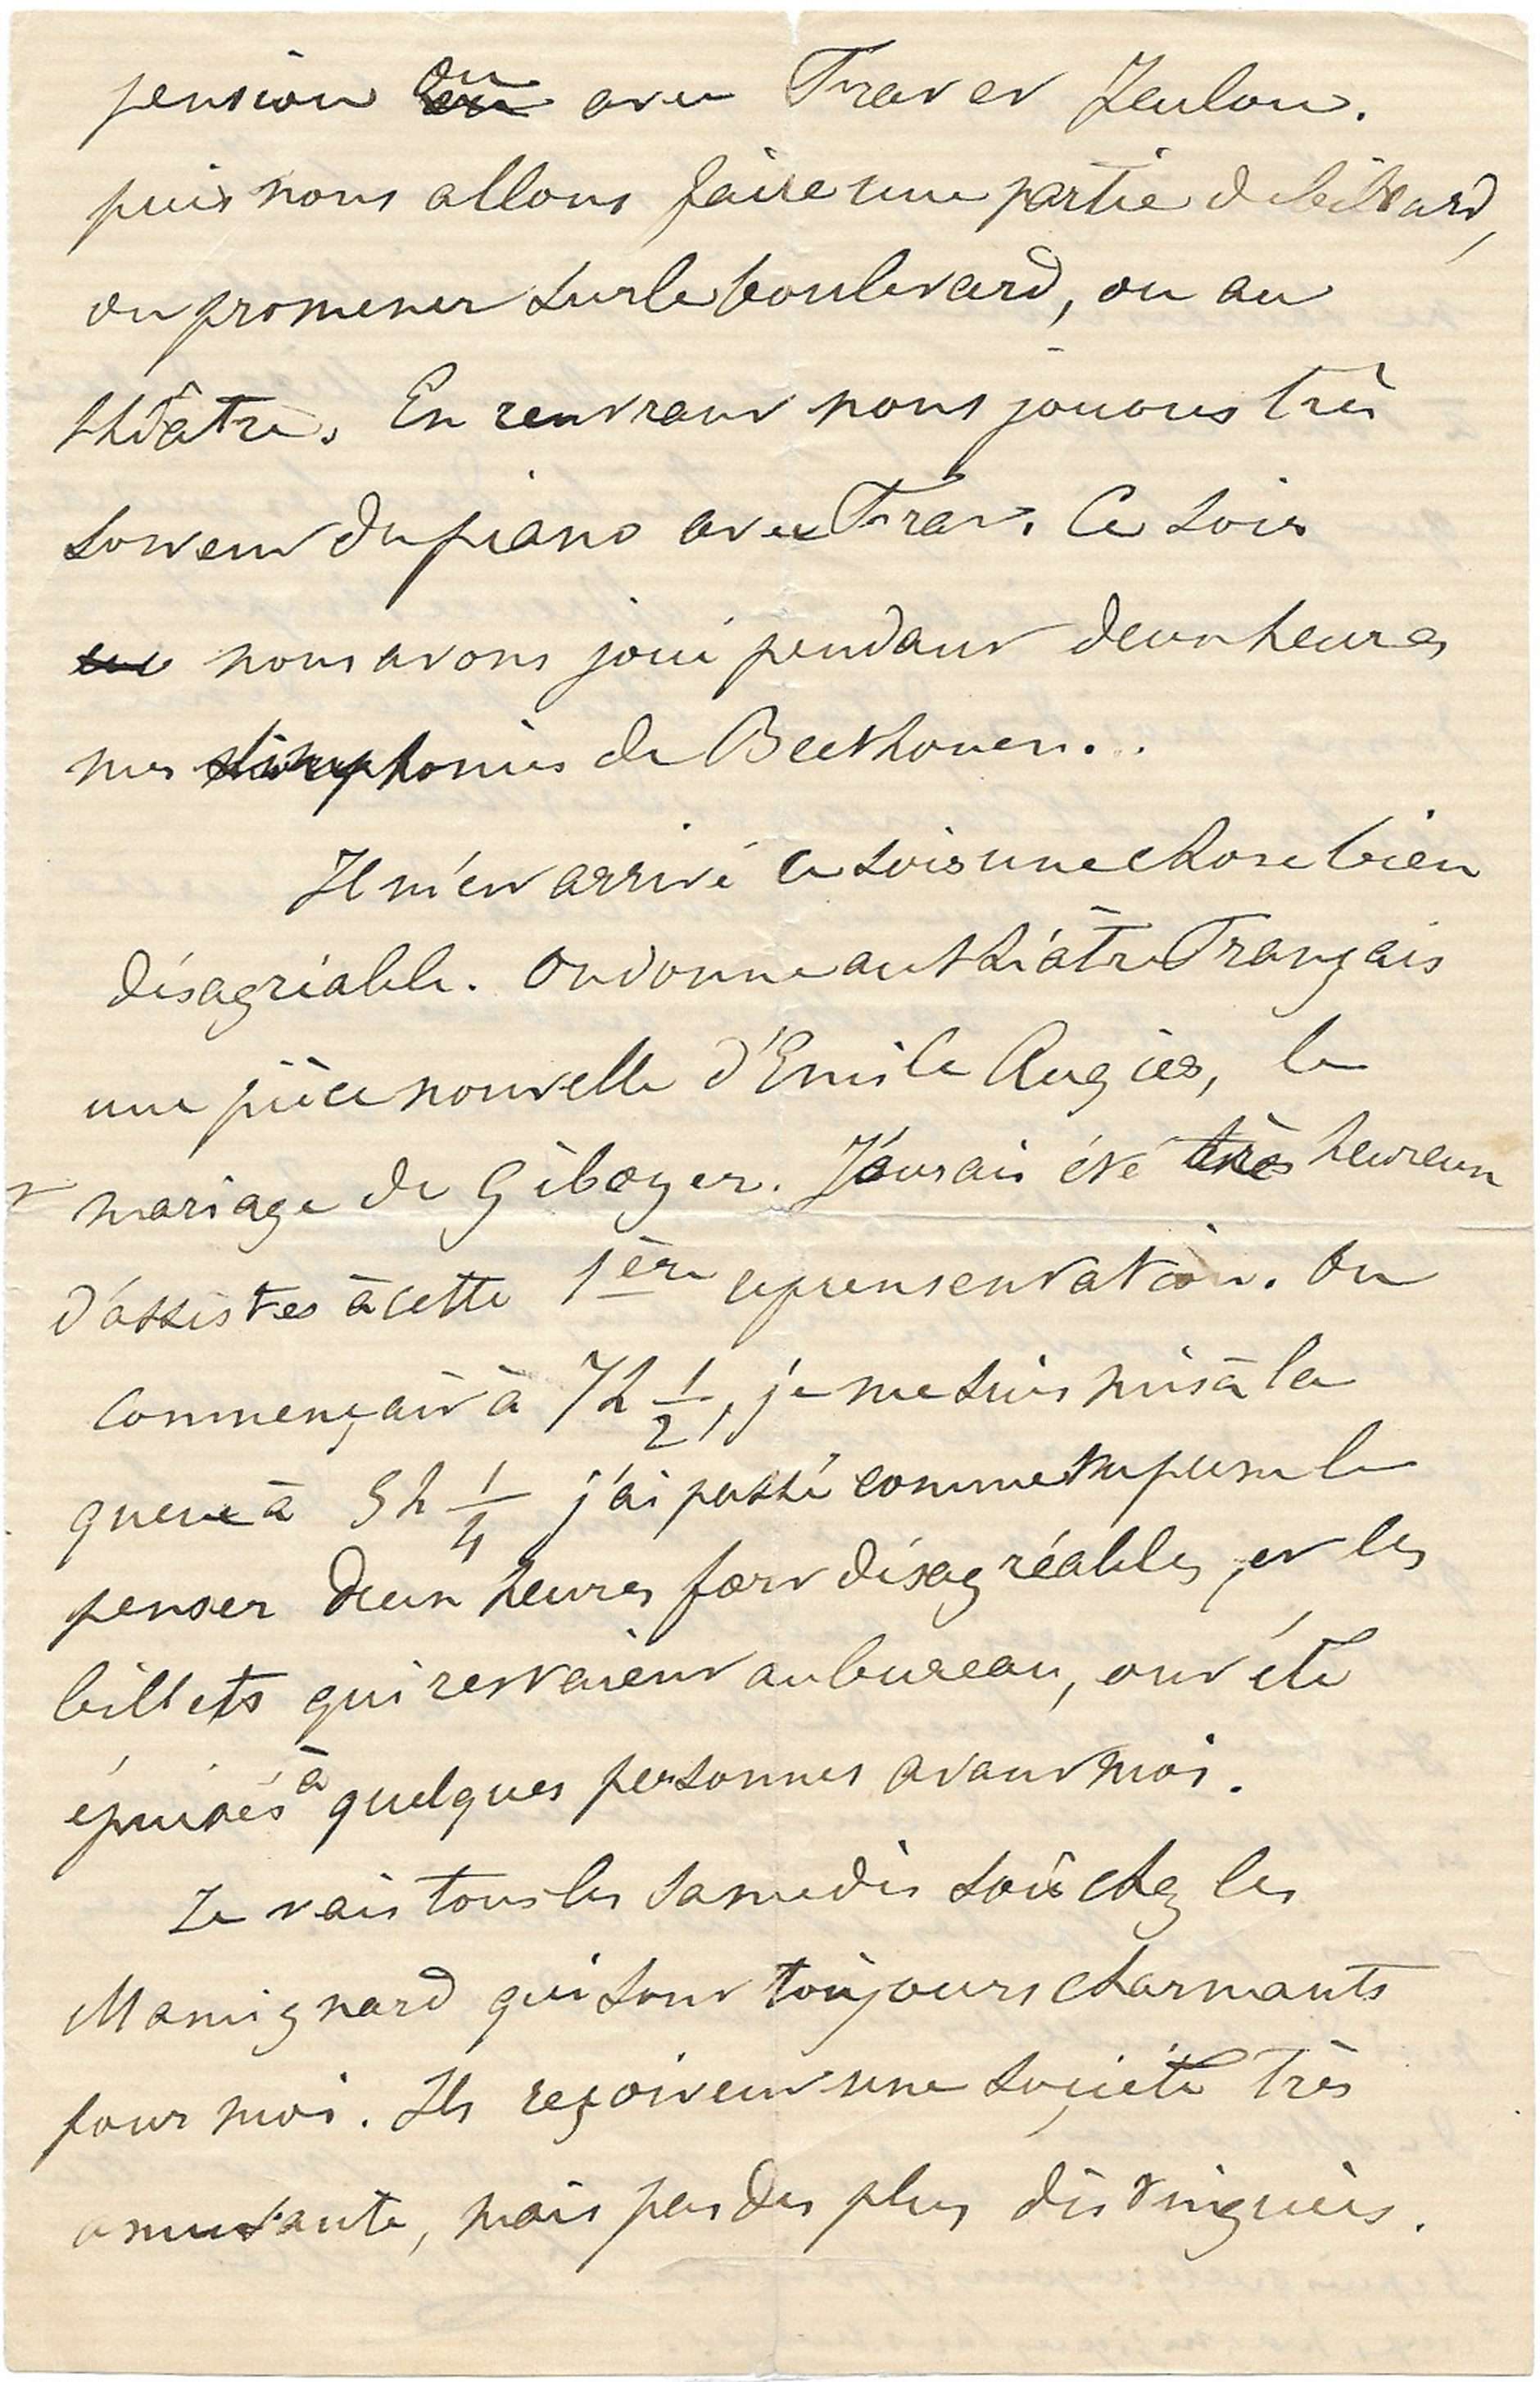 pension ou avec Frat et Zeulon.
puis nous allons faire une partie de billard,
ou promener sur le boulevard, ou au
théâtre. En rentrant nous jouons très
souvent du piano avec Frat. Ce soir
nous avons joué pendant deux heures
mes simphonies de Beethoven...
Il m'est arrivé ce soir une chose bien
désagréable. On donne au théâtre Français
une pièce nouvelle d'Emile Augier, le
mariage de Giboyer. J'aurais été très heureux
d'assister à cette 1ère reprensentation. On
commençait à 7h 1/2, je me suis mis à la
queue à 5h 1/4 j'ai passé comme tu peux le
penser deux heures fort désagréables, et les
billets qui restaient au bureau, ont été
épuisés à quelques personnes avant moi.
Je vais tous les samedis soir chez les
Mamignard qui sont toujours charmants
pour moi. Ils reçoivent une société très
amusante, mais pas des plus distinguées.